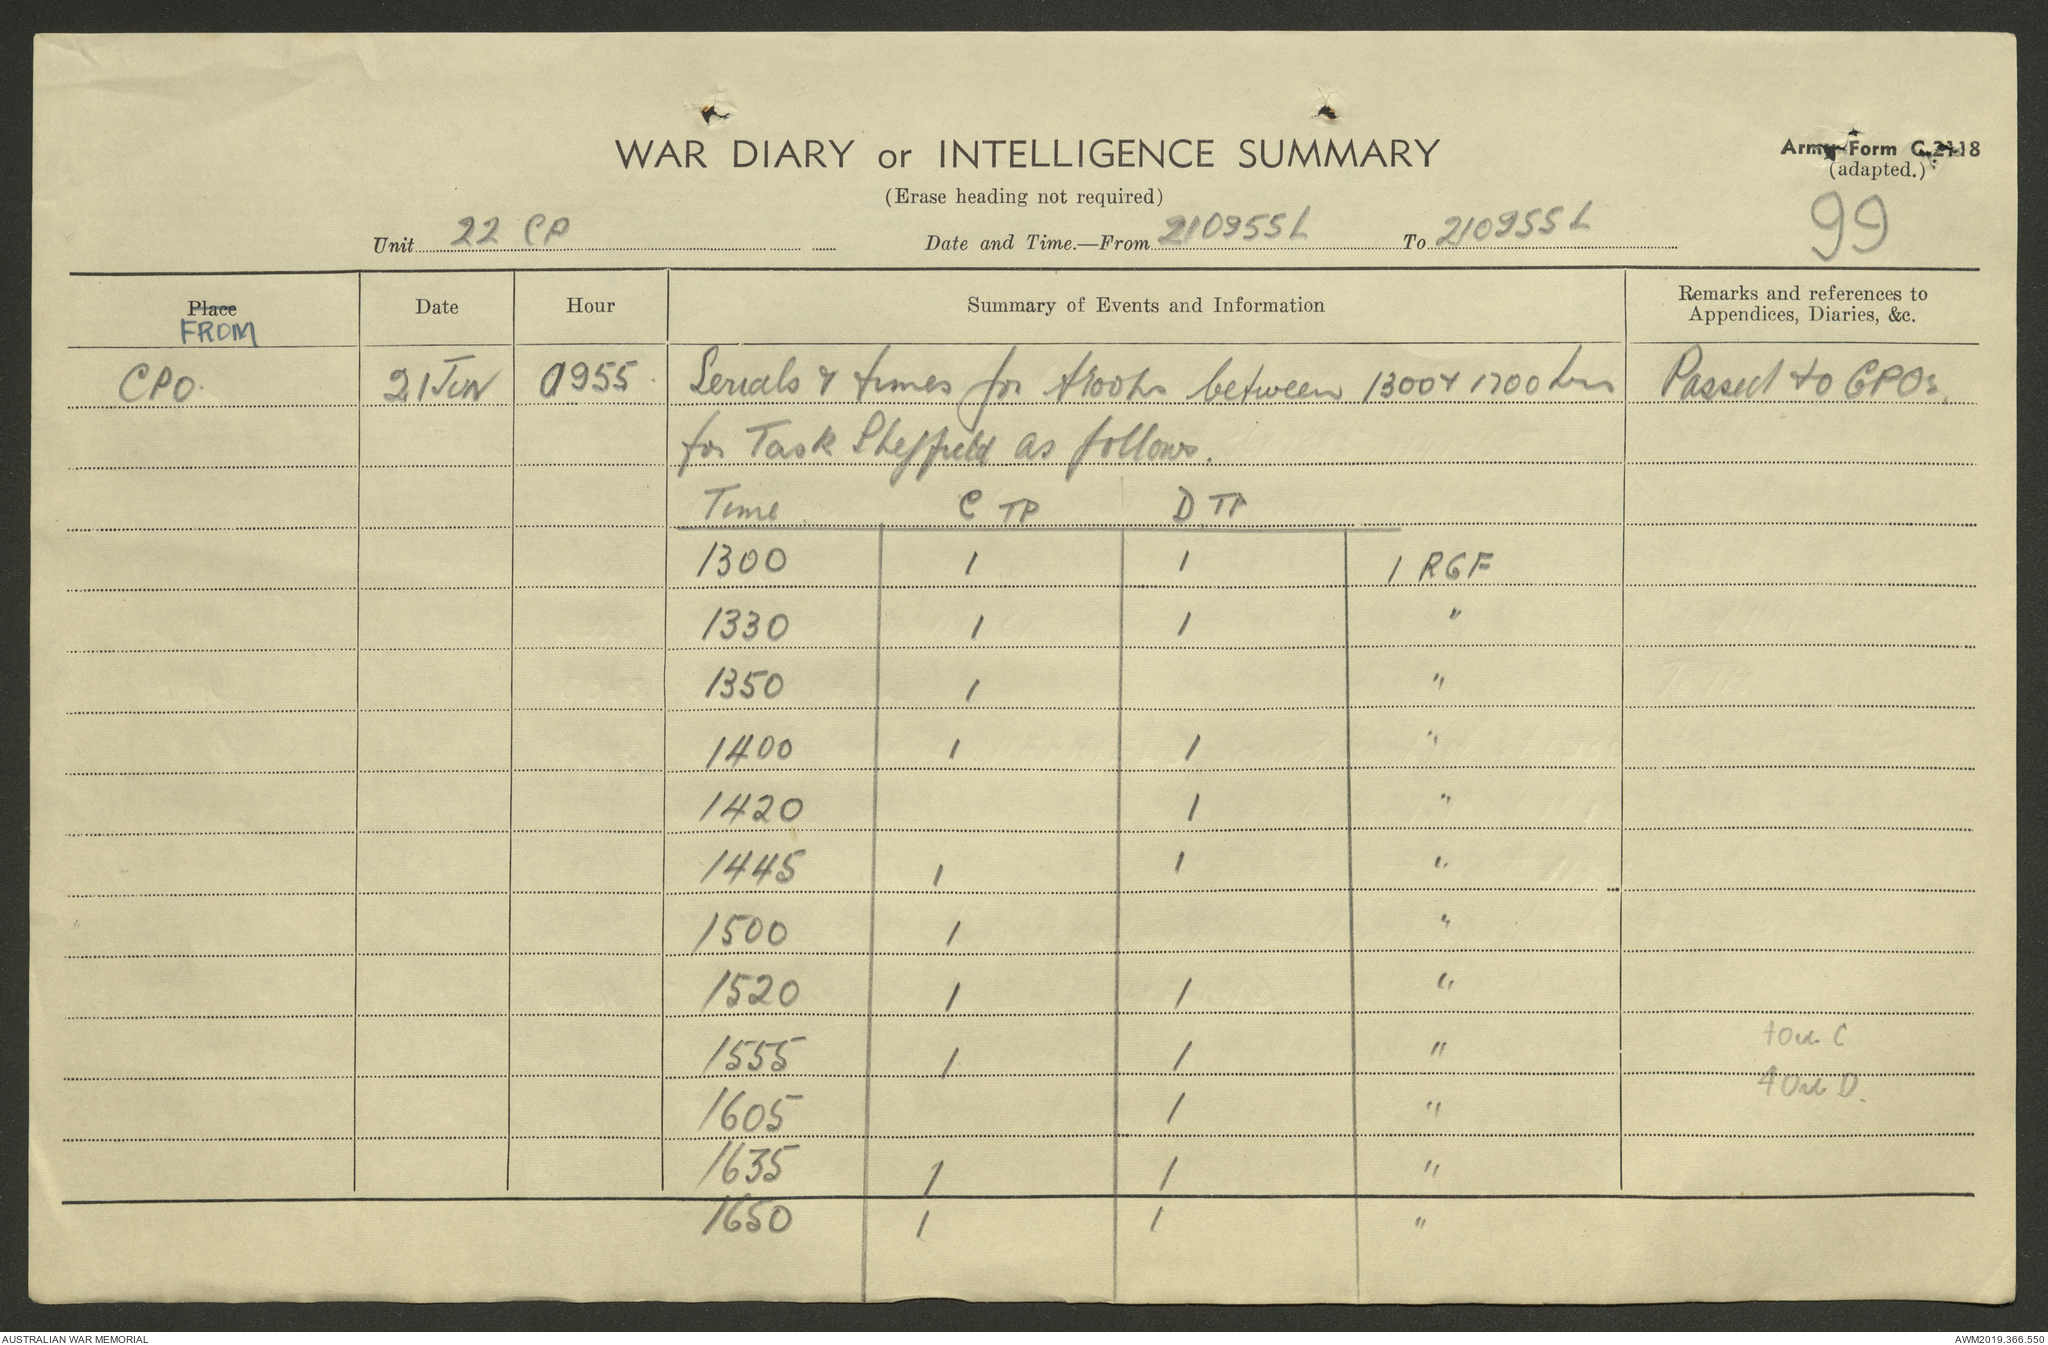 WAR DIARY or INTELLIGENCE SUMMARY
Army Form C.2118
(adapted.)
(Erase heading not required)
99
Unit 22 CP Date and Time.—From 210955L To 210955L
Place Date Hour Summary of Events and Information Remarks and references to Appendices, Diaries, &c.
FROM
CPO. 21 JUN 0955. Serials & times for between 1300 & 1700 hrs Passed to GPOs.
for Task Sheffield as follows.
Time C TP D TP
1300 1 1 1 RGF
1330 1 1 "
1350 1 "
1400 1 1 "
1420 1 "
1445 1 1 "
1500 1 "
1520 1 1 "
1555 1 1 "
1605 1 "
1635 1 1 "
1650 1 1 "
C
D.
AUSTRALIAN WAR MEMORIAL
AWM2019.366.550